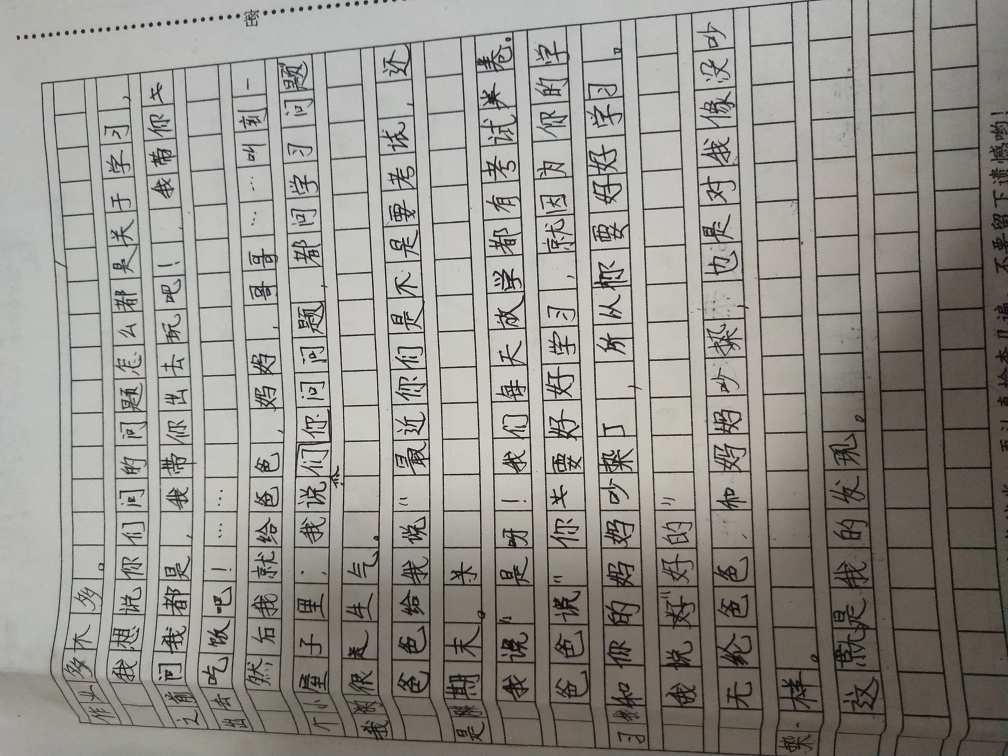 密
作业多不多。
我想说你们问的问题怎么都是关于学习，
之前问我都是，我带你出去玩吧！，我带你去
出去吃饭吧！……
然后我就给爸爸，妈妈，哥哥……叫刻一
个小屋子里：我说们你问问题，都问学习问题
我很生气。
爸爸给我说“最近你们是不是要考试，还
是期末。
我说“是呀！我们每天放学都有考试卷。
爸爸说“你要好好学习，就因为你的学
习和你的妈妈吵架了，所以你要好好学习。
我说好“好的”
无纶爸爸，和妈妈吵架，也是对我像没吵
架·样。
这就是我的发现。
不要留下遗憾哟!